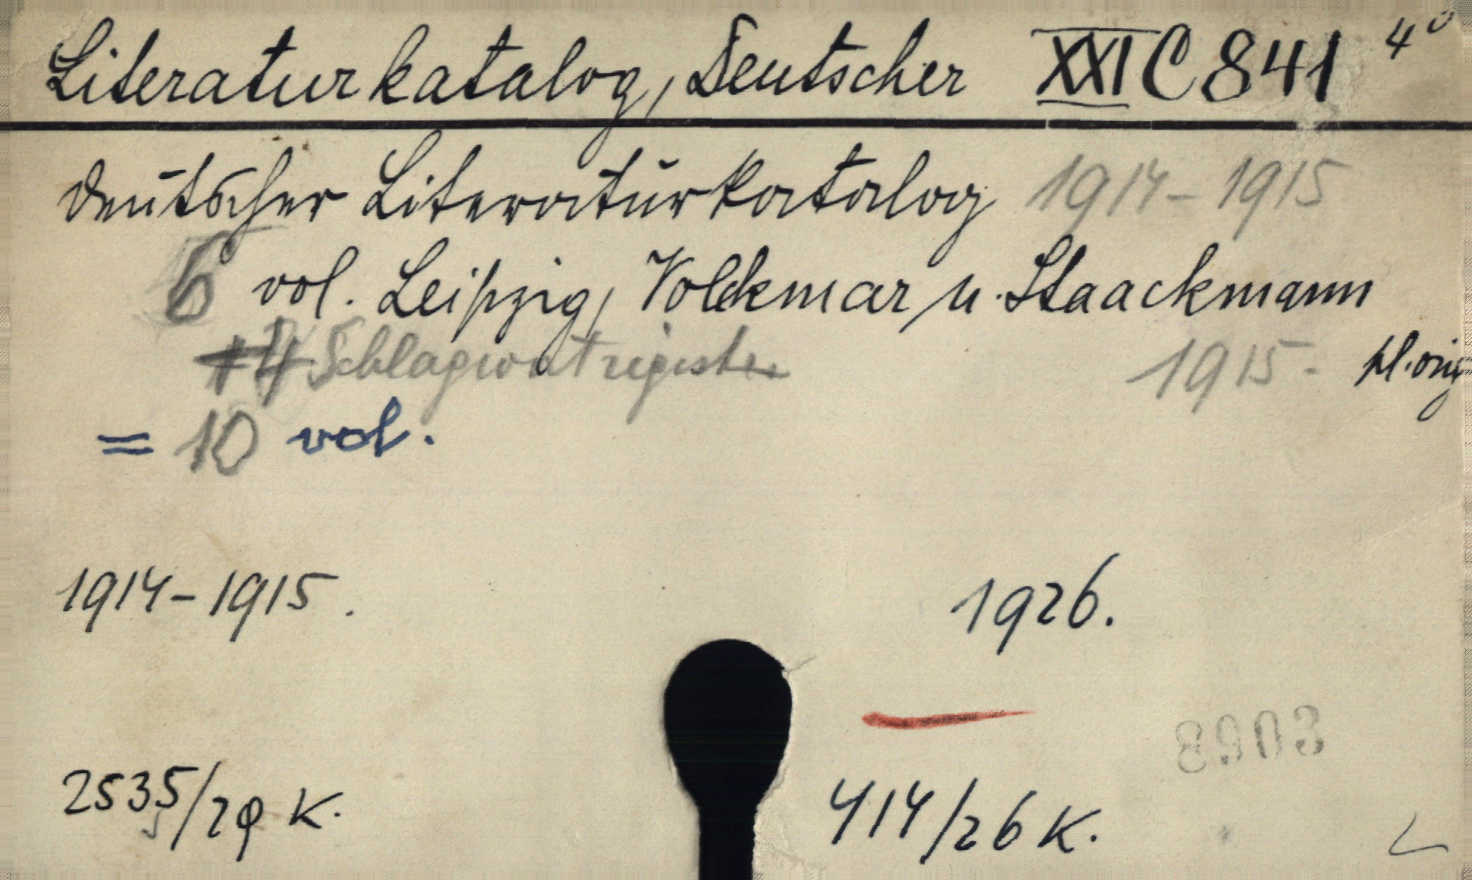 Literaturkatalog, Deutscher XXI C 841 4°
deutscher Literaturkatalog 1914-1915
6 vol. Leipzig, Volckmar u. Staackmann
+ 4 Schlagwortregister 1915- pl. orig
= 10 vol.
1914-1915. 1926.
2535/29 K. 414/26 K.